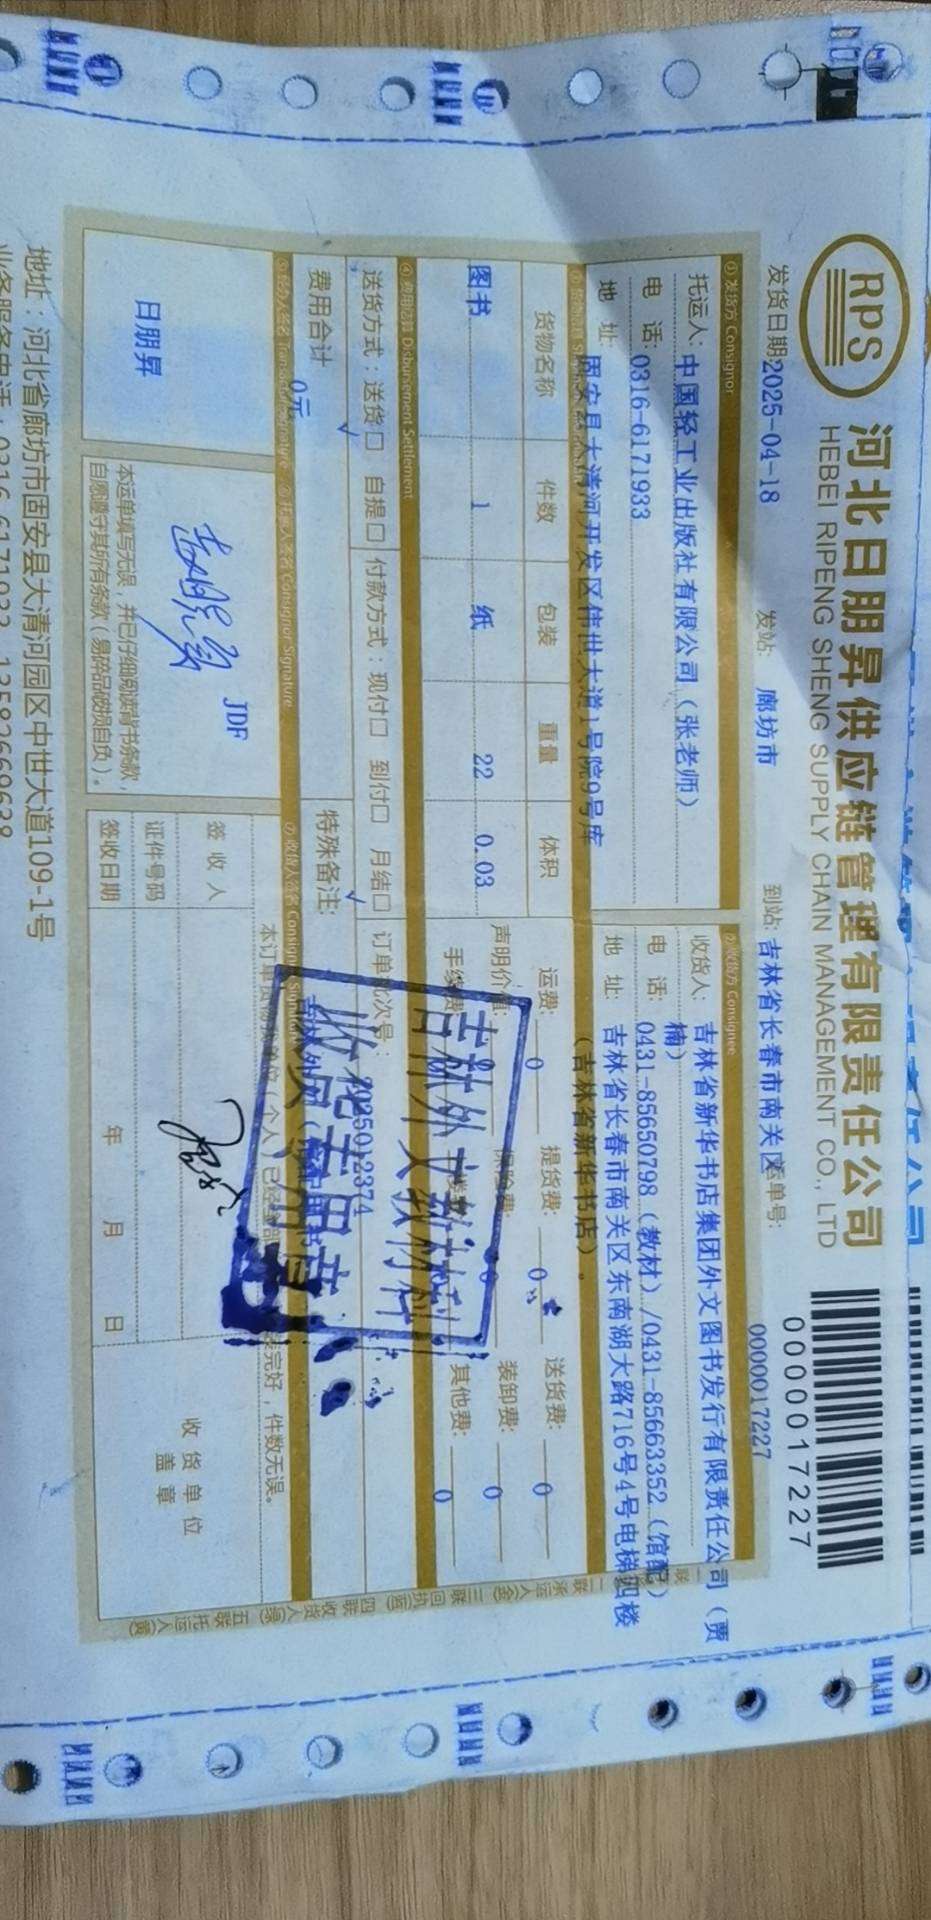 RPS
河北日朋昇供应链管理有限责任公司
HEBEI RIPENG SHENG SUPPLY CHAIN MANAGEMENT CO., LTD
0000017227
发货日期:2025-04-18 发站: 廊坊市 到站: 吉林省长春市南关区 运单号: 0000017227
①发货方 Consignor
托运人: 中国轻工业出版社有限公司（张老师）
电 话: 0316-6171933
地 址: 固安县大清河开发区伟世大道1号院9号库
②收货方 Consignee
收货人: 吉林省新华书店集团外文图书发行有限责任公司（贾楠）
电 话: 0431-85650798（教材）/0431-85663352（馆配）
地 址: 吉林省长春市南关区东南湖大路716号4号电梯四楼
（吉林省新华书店）
货物名称 件数 包装 重量 体积
图书 1 纸 22 0.03
运费: 0 提货费: 0 送货费: 0
声明价值: 0 保险费: 0 装卸费: 0
手续费: 其他费: 0
④费用结算 Disbursement Settlement
送货方式：送货□ 自提□ 付款方式：现付□ 到付□ 月结□ 订单批次号:
√ √
2025012374
费用合计 0元
特殊备注:
吉林外文教材科
收货专用章
Consignor Signature
⑦收货人签名 Consignee Signature
日朋昇
JDF
本运单填写无误，并已仔细阅读背书条款，
自愿遵守其所有条款（易碎品破损自负）。
完好，件数无误。
签 收 人
证件号码
签收日期 年 月 日
收 货 单 位
盖 章
地址：河北省廊坊市固安县大清河园区中世大道109-1号